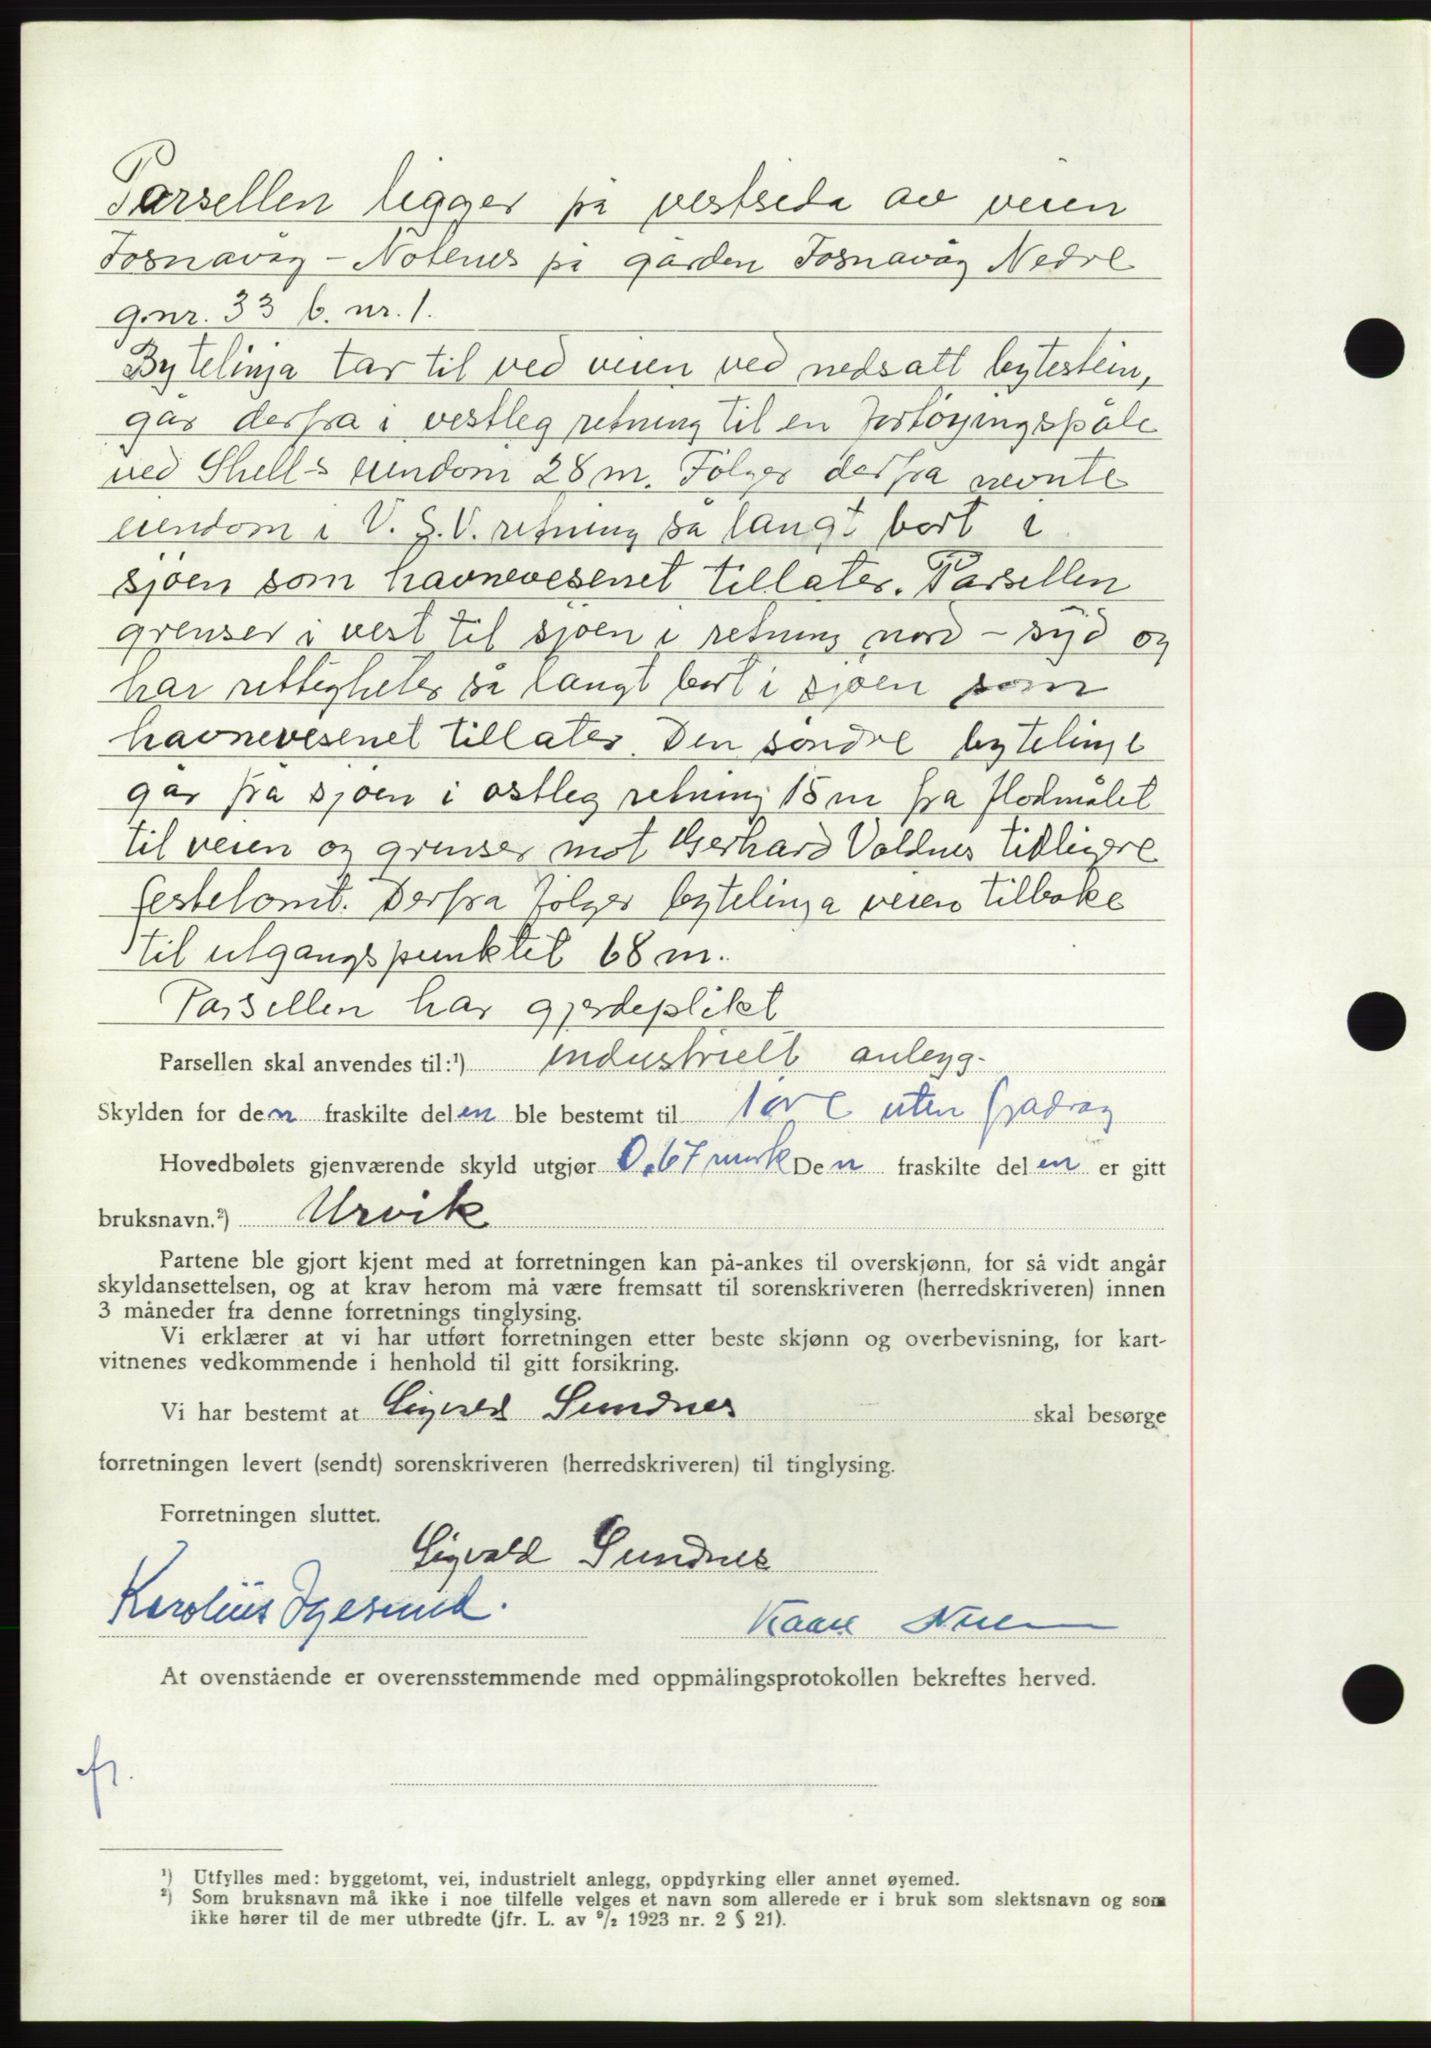 Parsellen ligger på vestsida av veien
Fosnavåg - Notenes på gården Fosnavåg Nedre
g.nr. 33 b. nr. 1.
Bytelinja tar til ved veien ved nedsatt bytestein,
går derfra i vestleg retning til en fortøyingspåle
ved Shell-s eiendom 28 m. Følger derfra nevnte
eiendom i V. S.V. retning så langt bort i
sjøen som havnevesenet tillater. Parsellen
grenser i vest til sjøen i retning nord - syd og
har rettigheter så langt bort i sjøen som
havnevesenet tillater. Den søndre bytelinje
går fra sjøen i østleg retning 15 m fra flodmålet
til veien og grenser mot Gerhard Voldnes tidligere
festetomt. Derfra følger bytelinja veien tilbake
til utgangspunktet 68 m.
Parsellen har gjerdeplikt
Parsellen skal anvendes til:¹) industrielt anlegg.
Skylden for den fraskilte delen ble bestemt til 1 øre uten fradrag
Hovedbølets gjenværende skyld utgjør 0.67 mark Den fraskilte delen er gitt
bruksnavn.²) Urvik
Partene ble gjort kjent med at forretningen kan på-ankes til overskjønn, for så vidt angår
skyldansettelsen, og at krav herom må være fremsatt til sorenskriveren (herredskriveren) innen
3 måneder fra denne forretnings tinglysing.
Vi erklærer at vi har utført forretningen etter beste skjønn og overbevisning, for kart-
vitnenes vedkommende i henhold til gitt forsikring.
Vi har bestemt at Sigvald Sundnes skal besørge
forretningen levert (sendt) sorenskriveren (herredskriveren) til tinglysing.
Forretningen sluttet.
Sigvald Sundnes
Karolius Igesund.
Kaare
At ovenstående er overensstemmende med oppmålingsprotokollen bekreftes herved.
¹) Utfylles med: byggetomt, vei, industrielt anlegg, oppdyrking eller annet øyemed.
²) Som bruksnavn må ikke i noe tilfelle velges et navn som allerede er i bruk som slektsnavn og som
ikke hører til de mer utbredte (jfr. L. av ⁹/₂ 1923 nr. 2 § 21).